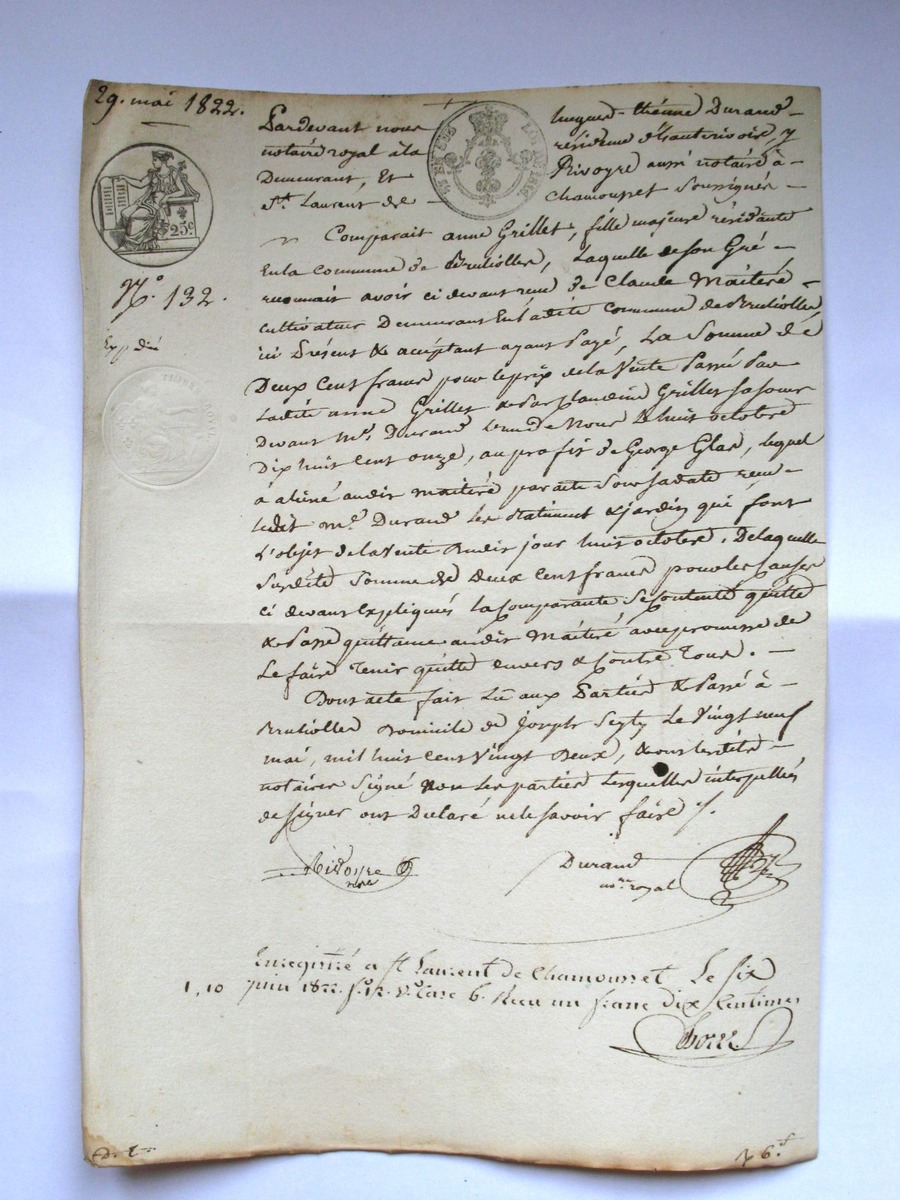 29. mai 1822.
Pardevant nous hugues-Etienne Durand
notaire royal à la résidence d'hauterivoire, y
Demeurant, Et Rivoyre aussi notaire à
St. Laurent de Chamousset Soussignés
25c
Comparait anne Grillet, fille majeure résidante
En la Commune de Bruliolles, Laquelle de son Gré
N.o 132.
reconnait avoir ci devant reçu de Claude Maiteré
cultivateur Demeurant En ladite Commune de Brulliolles
ici Présent & acceptant ayant Payé, La Somme de
Deux Cent francs pour le prix de la Vente Passé Par
Ladite anne Grillet & Par Claudine Grillet sa sœur
Devant Me. Durand Lun de Nous Le huit octobre
Dix huit cent onze, au profit de George Glas, lequel
a aliéné audit maiteré par acte sous sa date reçu
ledit Me. Durand les Batiment & jardin qui font
L'objet de la Vente dudit jour huit octobre. De laquelle
Susdite Somme de deux Cent francs pour les Causes
ci devant Expliqués la Comparante se Contente quitte
& Passe quittance audit Maiteré avec promesse de
Le faire Tenir quitte envers & Contre Tous.
Dont acte fait Lu aux Parties & Passé à
Brulliolles Domicile de Joseph le Vingt neuf
mai, mil huit cent Vingt Deux, & ont lesdits
notaires Signé non les parties Lesquelles interpellés
de Signer ont Déclaré ne le Savoir faire /.
Rivoyre
nore
Durand
nore. royal
Enregistré a St Laurent de Chamousset Le Six
1,10 juin 1822. fo. 12. Vo. Case 6. Recu un franc dix Centimes